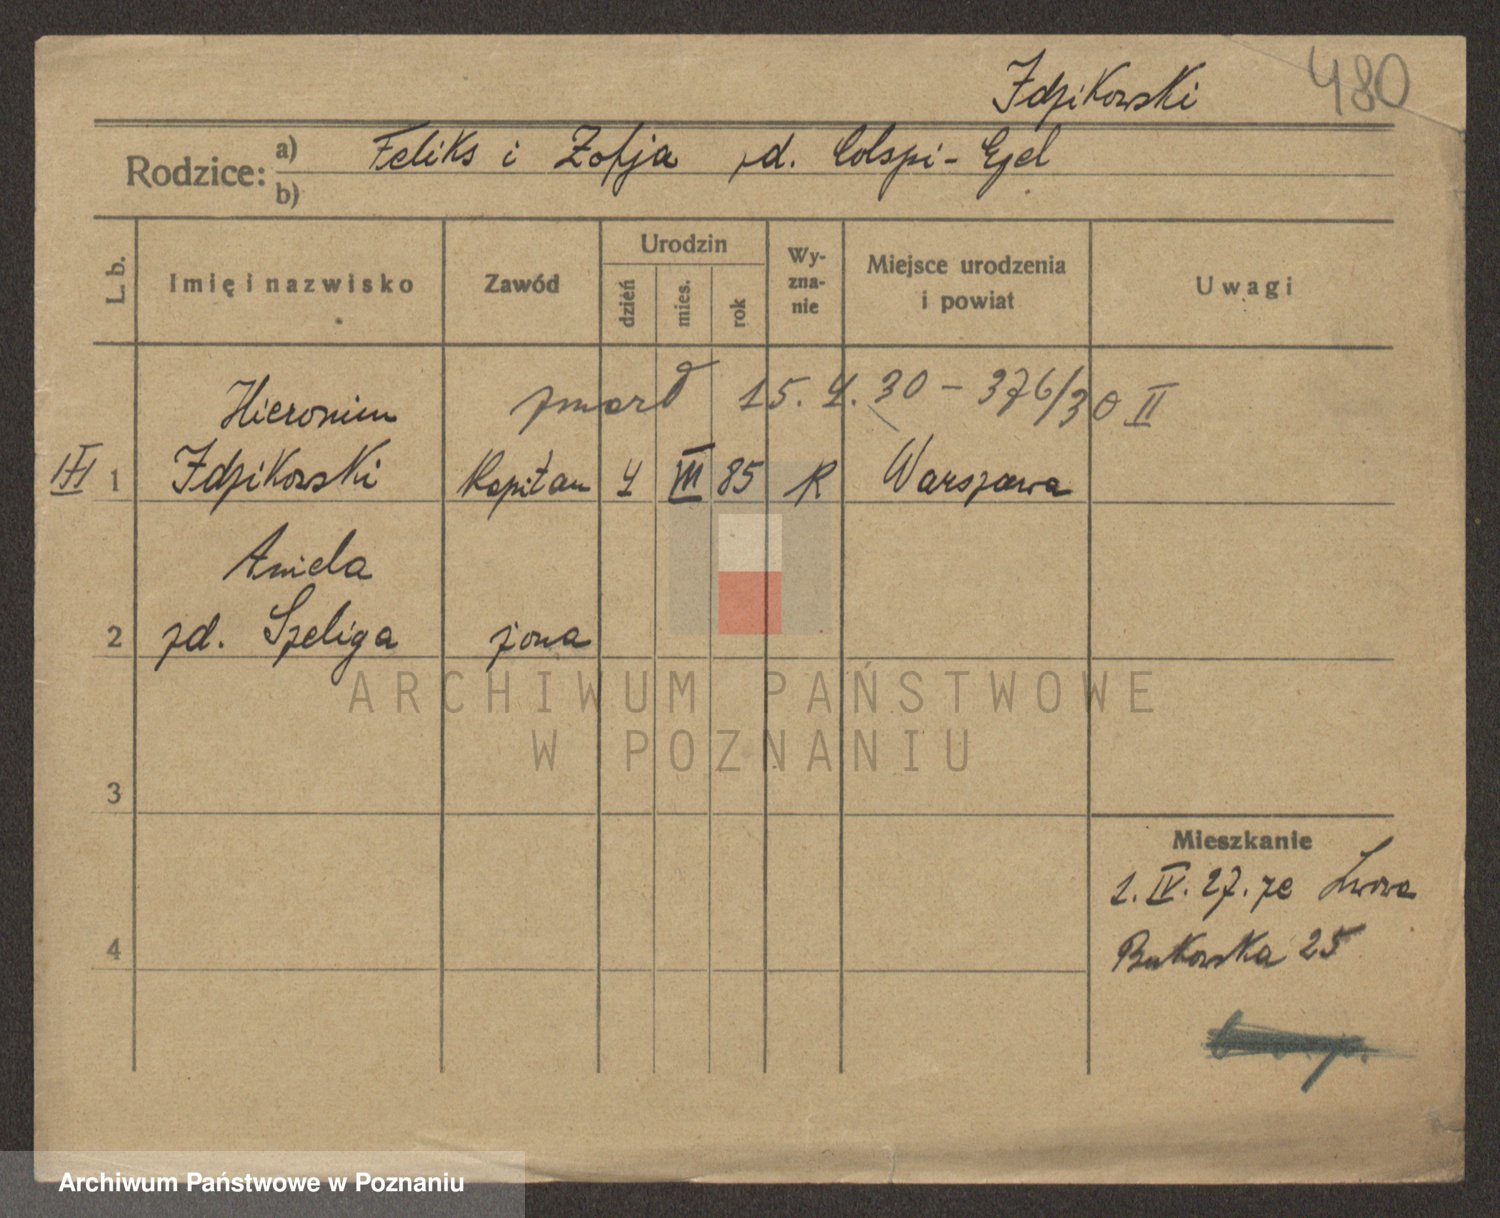 Idzikowski 480
Rodzice: a) Feliks i Zofja zd. Colspi-Ejel
b)
L. b. Imię i nazwisko Zawód Urodzin dzień mies. rok Wy-zna-nie Miejsce urodzenia i powiat Uwagi
Hieronim zmarł 15.4.30 – 376/30 II
III 1 Idzikowski Kapitan 4 VII 85 R Warszawa
Aniela
2 zd. Szeliga żona
3
Mieszkanie
1. IV. 27. ze Lwowa
4 Bukowska 25
ARCHIWUM PAŃSTWOWE
W POZNANIU
Archiwum Państwowe w Poznaniu